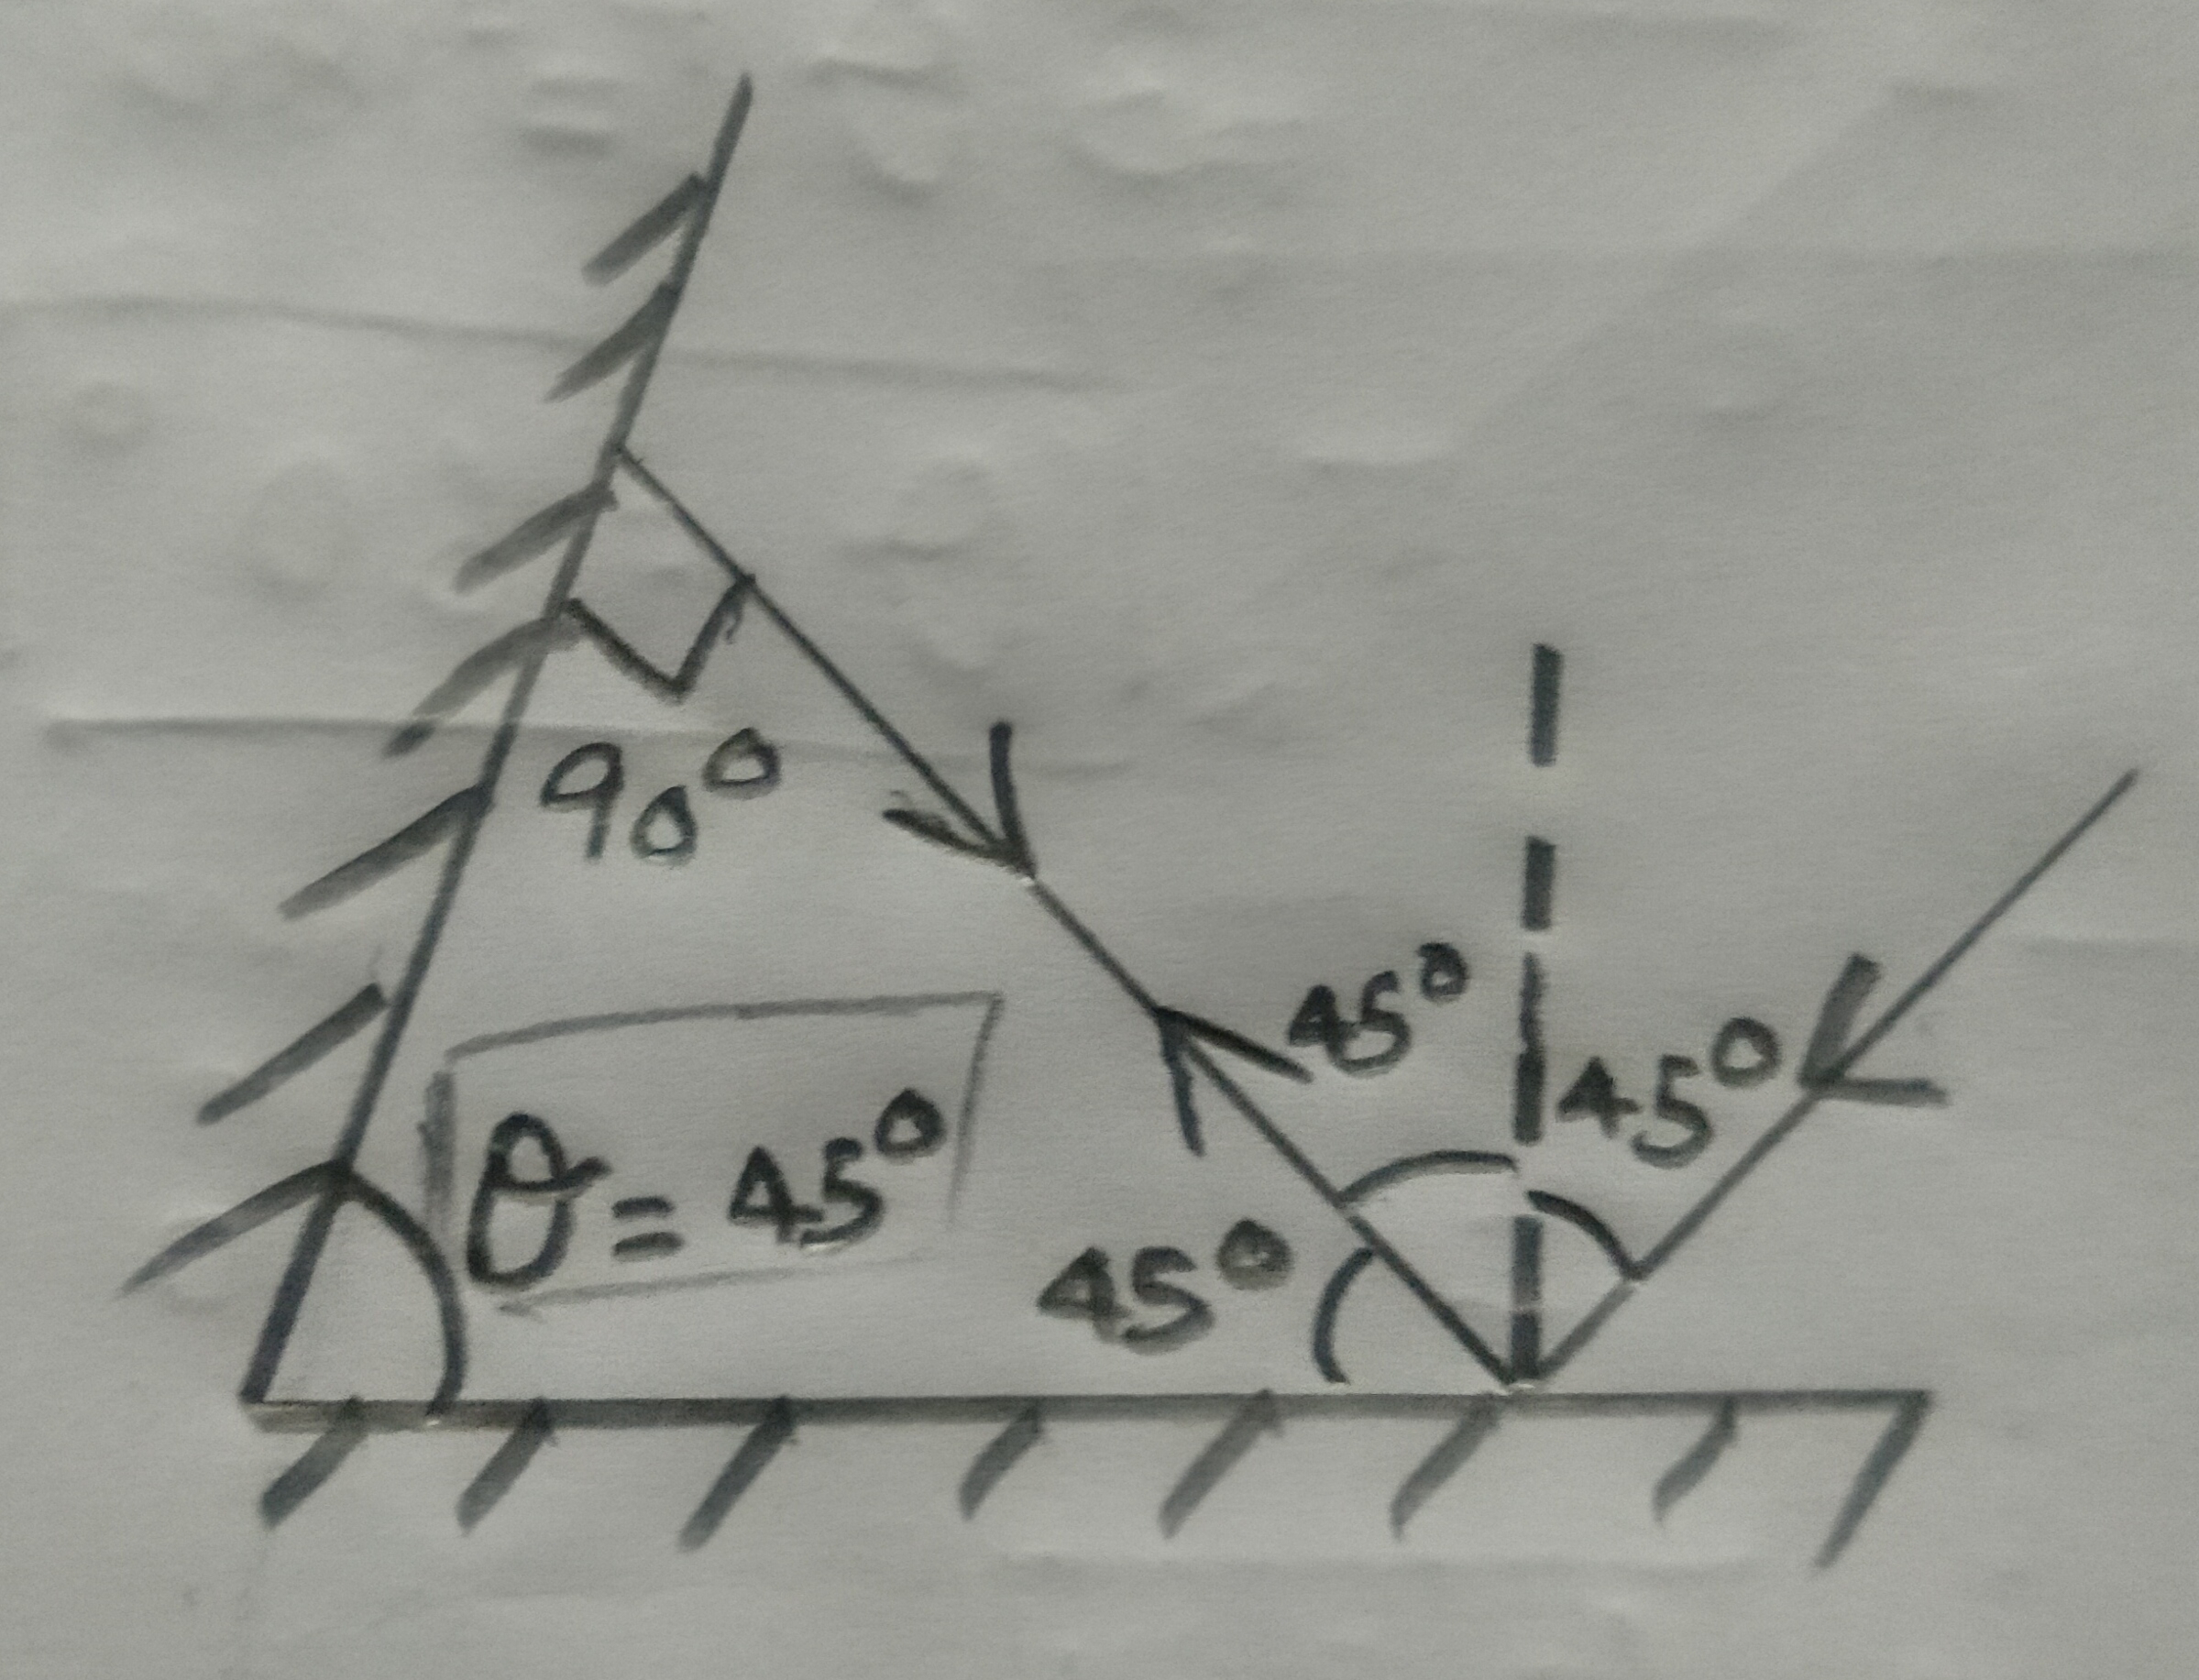 90°
45°
45°
θ = 45°
45°